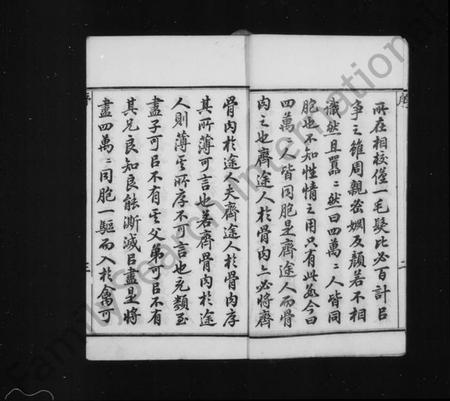 序
所在相校僅一毛髮比必百計以
爭之雖周親密姻反顏若不相
識然且囂囂然曰四萬萬人皆同
胞也不知性情之用只有此數今曰
四萬萬人皆同胞是齊途人而骨
肉之也齊途人於骨肉亦必將齊
二
骨肉於途人夫齊途人於骨肉厚
其所薄可言也若齊骨肉於途
人則薄其所厚不可言也充類至
盡子可以不有其父弟可以不有
其兄良知良能澌滅以盡是將
盡四萬萬同胞一驅而入於禽可
序
三
FamilySearch International